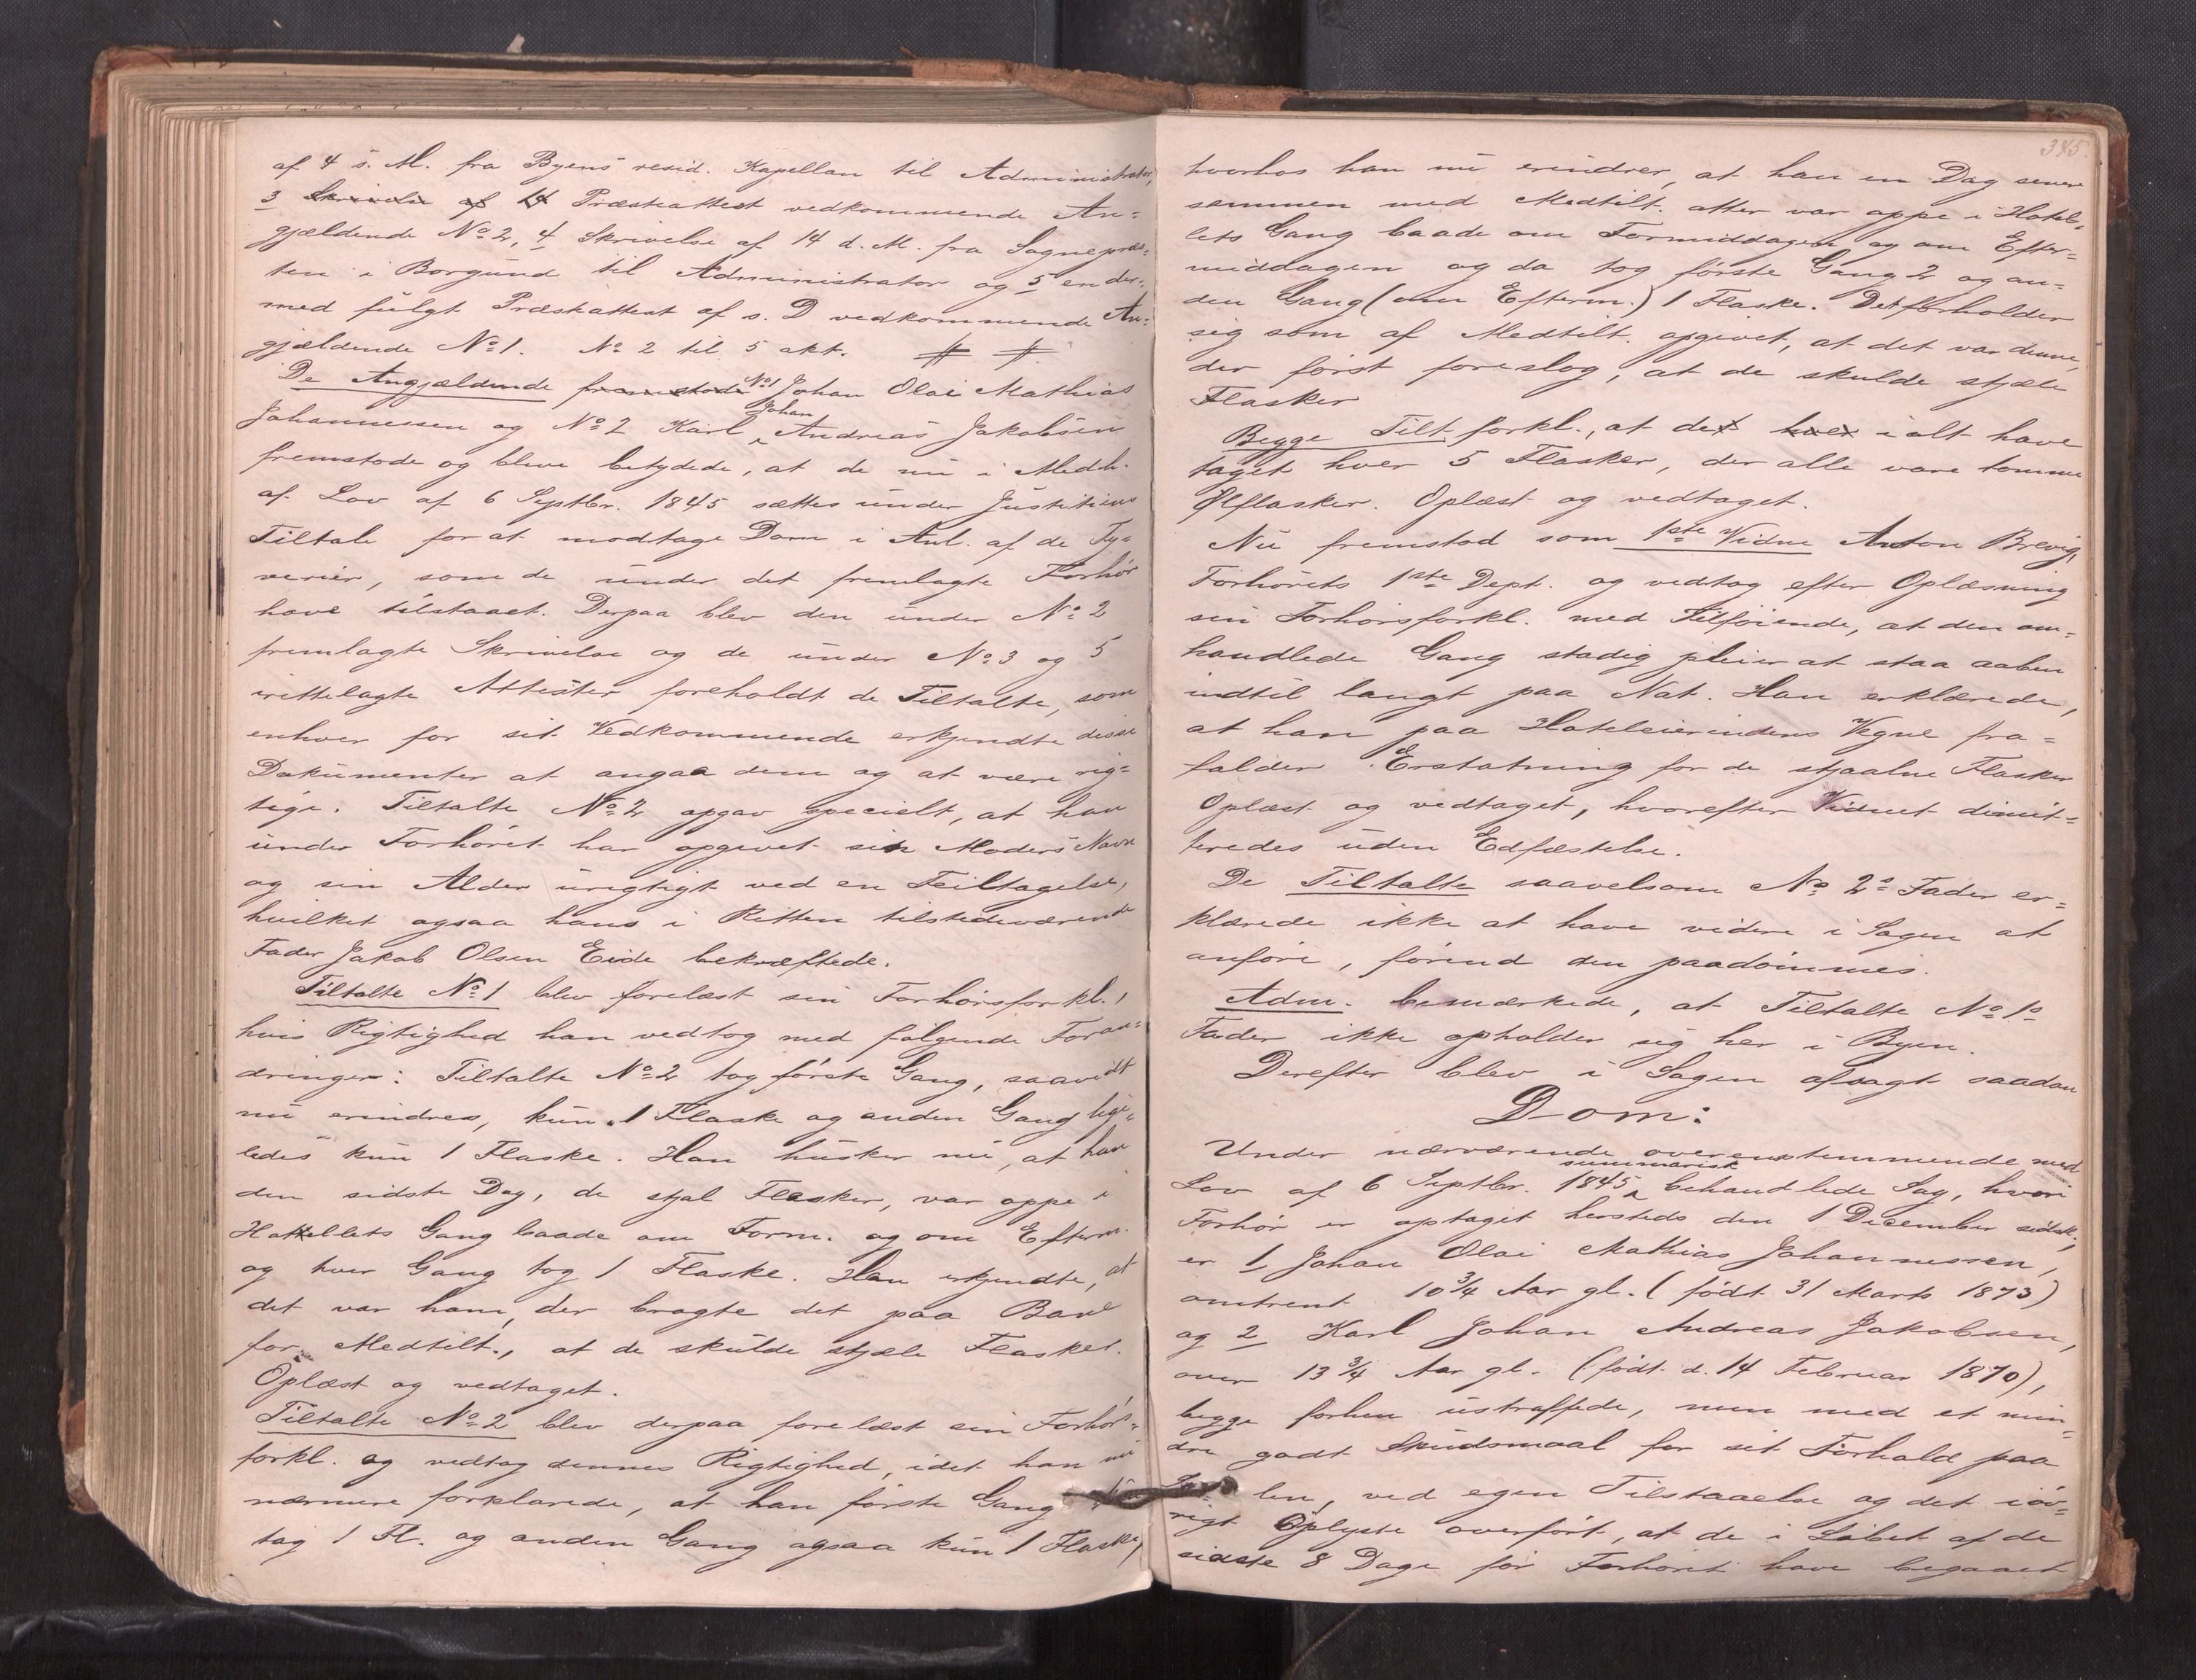 af 4 s. M. fra Byens resid. Kapellan til Administrator,
3 Skrivelse af 14 Præsteattest vedkommende An-
gjældende No 2, 4 Skrivelse af 14 d. M. fra Sognepræs-
ten i Borgund til Administrator og 5 en der-
med fulgt Præsteattest af s. D vedkommende An-
gjældende No 1. No 2 til 5 akt.
De Angjældende fremstode No 1 Johan Olai Mathias
Johannessen og No 2 Karl Johan Andreas Jakobsen
fremstode og bleve betydede, at de nu i Medh.
af Lov af 6 Septbr. 1845 sættes under Justitiens
Tiltale for at modtage Dom i Anl. af de Ty-
verier, som de under det fremlagte Forhør
have tilstaaet. Derpaa blev den under No 2
fremlagte Skrivelse og de under No 3 og 5
irettelagte Attester foreholdt de Tiltalte, som
enhver for sit Vedkommende erkjendte disse
Dokumenter at angaa dem og at være rig-
tige. Tiltalte No 2 opgav specielt, at han
under Forhøret har opgivet sin Moders Navn
og sin Alder urigtigt ved en Feiltagelse,
hvilket ogsaa hans i Retten tilstedeværende
Fader Jakob Olsen Eide bekræftede.
Tiltalte No 1 blev forelæst sin Forhørsforkl.,
hvis Rigtighed han vedtog med følgende Foran-
dringer: Tiltalte No 2 tog første Gang, saavidt
nu erindres, kun 1 Flaske og anden Gang lige-
ledes kun 1 Flaske. Han husker nu, at han
den sidste Dag, de stjal Flasker, var oppe i
Hotellets Gang baade om Form. og om Efterm.
og hver Gang tog 1 Flaske. Han erkjendte, at
det var ham, der bragte det paa Bane
for Medtilt., at de skulde stjæle Flasker.
Oplæst og vedtaget.
Tiltalte No 2 blev derpaa forelæst sin Forhørs-
forkl. og vedtog dennes Rigtighed, idet han nu
nærmere forklarede, at han første Gang kun
tog 1 Fl. og anden Gang ogsaa kun 1 Flaske,
345.
hvorhos han nu erindrer, at han en Dag senere
sammen med Medtilt. atter var oppe i Hotel-
lets Gang baade om Formiddagen og om Efter-
middagen og da tog første Gang 2 og an-
den Gang (om Efterm.) 1 Flaske. Det forholder
sig som af Medtilt. opgivet, at det var denne,
der først foreslog, at de skulde stjæle
Flasker
Begge Tilt forkl., at de hver ialt have
taget hver 5 Flasker, der alle vare tomme
Ølflasker. Oplæst og vedtaget.
Nu fremstod som 1ste Vidne Anton Brevig,
Forhørets 1ste Dept. og vedtog efter Oplæsning
sin Forhørsforkl. med Tilføiende, at den om-
handlede Gang stadig pleier at staa aaben
indtil langt paa Nat. Han erklærede,
at han paa Hoteleierindens Vegne fra-
falder Erstatning for de stjaalne Flasker
Oplæst og vedtaget, hvorefter Vidnet dimit-
teredes uden Edfæstelse.
De Tiltalte saavelsom No 2s Fader er-
klærede ikke at have videre i Sagen at
anføre, førend den paadømmes.
Adm. bemærkede, at Tiltalte No 1s
Fader ikke opholder sig her i Byen.
Derefter blev i Sagen afsagt saadan
Dom:
Under nærværende overensstemmende med
Lov af 6 Septbr. 1845 summarisk behandlede Sag, hvori
Forhør er optaget hersteds den 1 December sidstl.,
er 1 Johan Olai Mathias Johannessen,
omtrent 10 3/4 Aar gl. (født 31 Marts 1873)
og 2 Karl Johan Andreas Jakobsen,
over 13 3/4 Aar gl. (født d. 14 Februar 1870),
begge forhen ustraffede, men med et min-
dre godt Skudsmaal for sit Forhold paa
len, ved egen Tilstaaelse og det iøv-
rigt Oplyste overført, at de i Løbet af de
sidste 8 Dage før Forhøret have begaaet